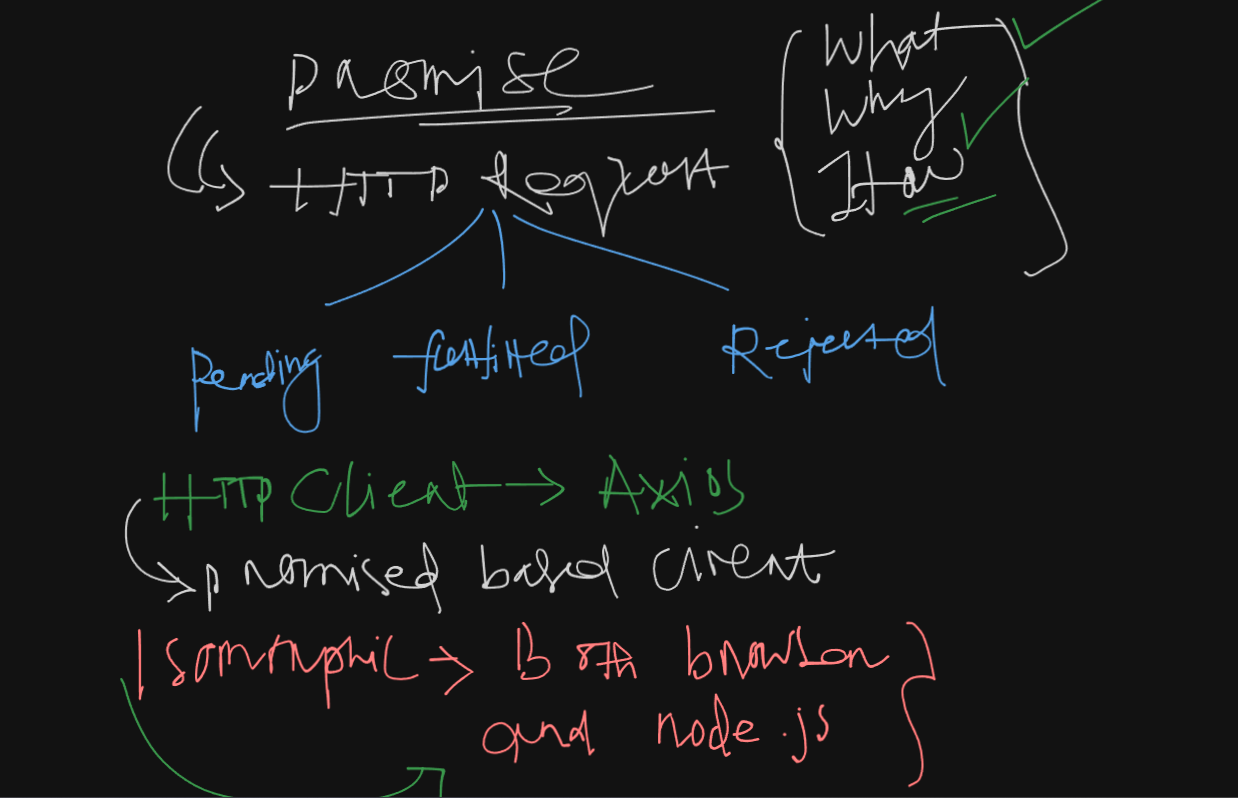 Promise
HTTP Request
What
Why
How
Pending
fulfilled
Rejected
HTTP Client → Axios
promised based client
Isomorphic → Both browser
and node.js